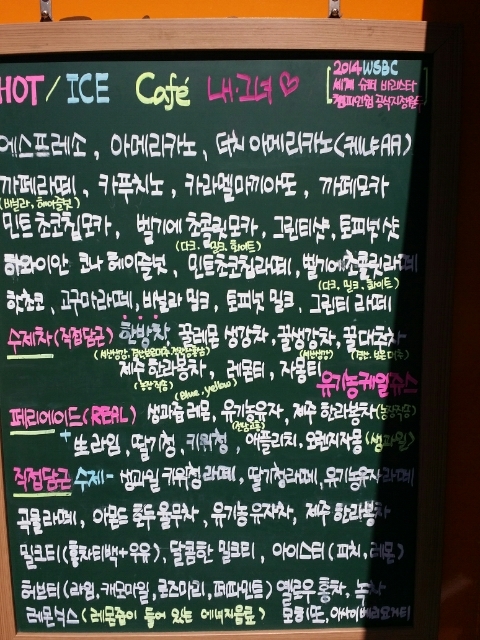 HOT / ICE Café 내·그녀 ♡
2014 WSBC
세계 슈퍼 바리스타
챔피언쉽 공식지정원두
에스프레소, 아메리카노, 더치 아메리카노(케냐AA)
까페라떼, 카푸치노, 카라멜마끼아또, 까페모카
(바닐라, 헤이즐넛)
민트초코칩모카, 벨기에 초콜릿모카, 그린티샷, 토피넛 샷
(다크, 밀크, 화이트)
하와이안 코나 헤이즐넛, 민트초코칩라떼, 벨기에초콜릿라떼
(다크, 밀크, 화이트)
핫초코, 고구마라떼, 바닐라 밀크, 토피넛 밀크, 그린티 라떼
수제차(직접담근) 한방차 꿀레몬 생강차, 꿀생강차, 꿀대추차
제주한라봉차, 레몬티, 자몽티
(농장직송) (blue, yellow) 유기농케일쥬스
페리에이드(REAL) 생과즙 레몬, 유기농유자, 제주 한라봉차(농장직송)
+ 생라임, 딸기청, 키위청, 애플리치, 오렌지자몽 (생과일)
직접담근 수제- 생과일 키위청라떼, 딸기청라떼, 유기농유자라떼
곡물라떼, 아몬드 호두 율무차, 유기농유자차, 제주 한라봉차
밀크티(홍차티백+우유), 달콤한 밀크티, 아이스티(피치, 레몬)
허브티(라임, 캐모마일, 로즈마리, 페파민트) 옐로우 홍차, 녹차
레몬식스 (레몬즙이 들어 있는 에너지음료) 모히또, 아사이베리요거티